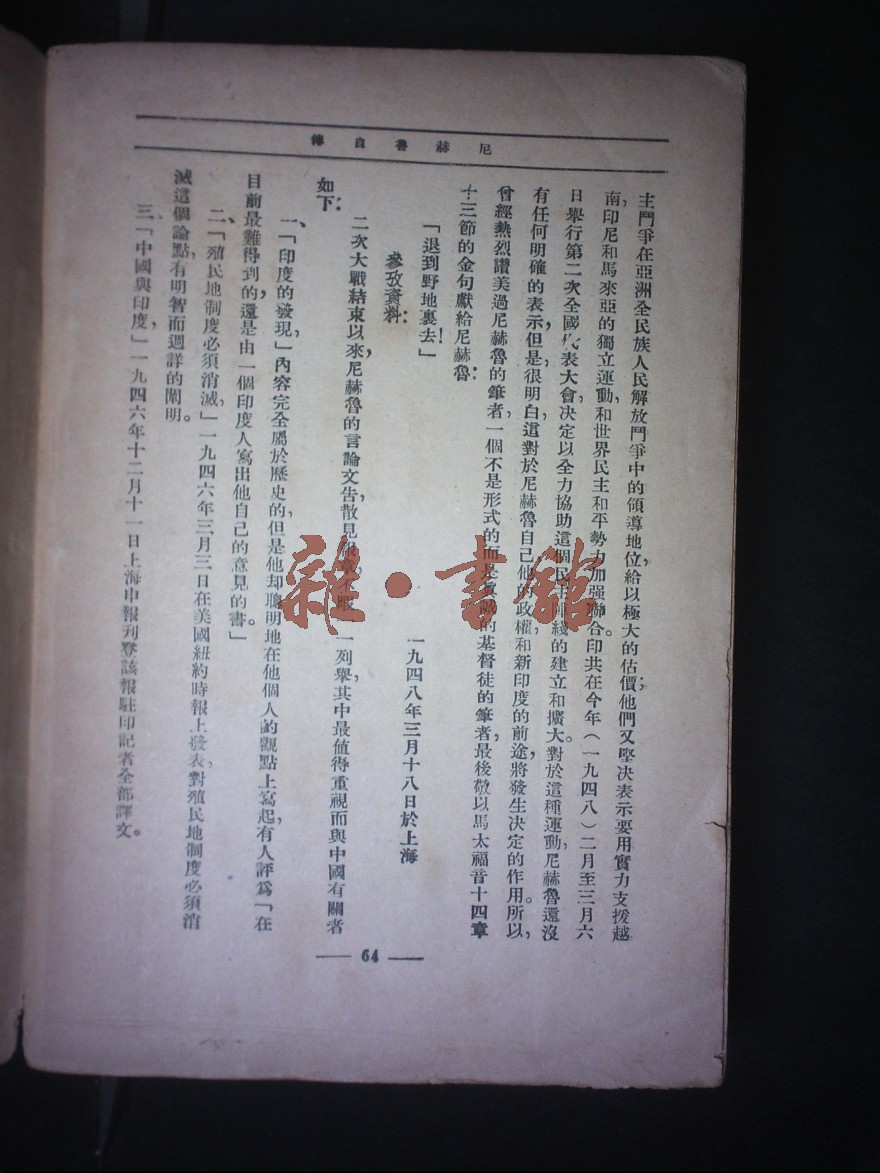 尼赫魯自傳
主鬥爭在亞洲全民族人民解放鬥爭中的領導地位，給以極大的估價；他們又堅决表示要用實力支援越
南，印尼和馬來亞的獨立運動，和世界民主和平勢力加强聯合。印共在今年（一九四八）二月至三月六
日舉行第二次全國代表大會，決定以全力協助這個民主陣綫的建立和擴大。對於這種運動，尼赫魯還沒
有任何明確的表示，但是，很明白，這對於尼赫魯自己，他的政權和新印度的前途，將發生決定的作用。所以，
曾經熱烈讚美過尼赫魯的筆者，一個不是形式的而是眞誠的基督徒的筆者，最後敬以馬太福音十四章
十三節的金句獻給尼赫魯：
「退到野地裏去！」
一九四八年三月十八日於上海
參攷資料：
二次大戰結束以來，尼赫魯的言論文告，散見 一一列舉，其中最值得重視而與中國有關者
如下：
一、「印度的發現，」內容完全屬於歷史的，但是他却聰明地在他個人的觀點上寫起，有人評爲「在
目前最難得到的，還是由一個印度人寫出他自己的意見的書。」
二、「殖民地制度必須消滅，」一九四六年三月三日在美國紐約時報上發表，對殖民地制度必須消
滅這個論點，有明智而週詳的闡明。
三、「中國與印度，」一九四六年十二月十一日上海申報刋登該報駐印記者全部譯文。
— 64 —
雜·書館